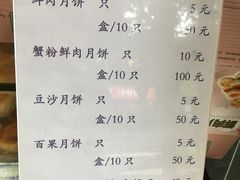 鲜肉月饼 只 5 元
盒/10 只 50 元
蟹粉鲜肉月饼 只 10 元
盒/10 只 100 元
豆沙月饼 只 5 元
盒/10 只 50 元
百果月饼 只 5 元
盒/10 只 50 元